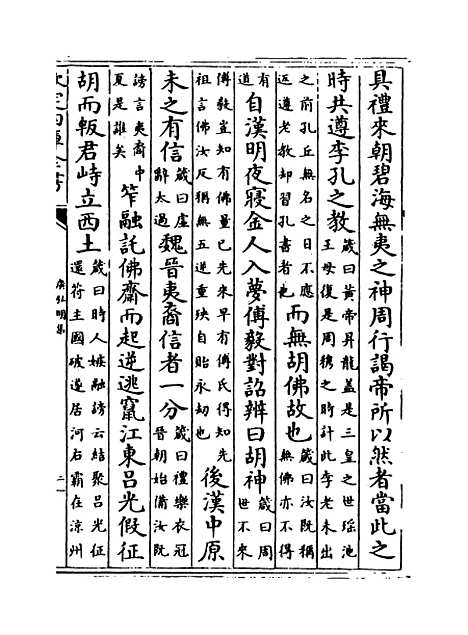 具禮來朝碧海無夷之神周行謁帝所以然者當此之
時共遵李孔之教箴曰黃帝昇龍蓋是三皇之世瑤池王母復是周穆之時計此李老未出
之前孔丘無名之日不應返遵老教却習孔書者也而無胡佛故也箴曰汝既稱無佛亦不得
有道自漢明夜寢金人入夢傅毅對詔辨曰胡神箴曰周世不來
傅毅豈知有佛量已先來早有傅氏得知先祖言佛汝反稱無五逆重殃自貽永劫也後漢中原
未之有信箴曰虛辭太過魏晉夷裔信者一分箴曰禮樂衣冠晉朝始備汝既
謗言夷裔中夏是誰笮融託佛齋而起逆逃竄江東呂光假征
胡而叛君峙立西土箴曰時人嫉融謗云結聚呂光征還符主國破遂居河右霸在涼州
欽定四庫全書
廣弘明集